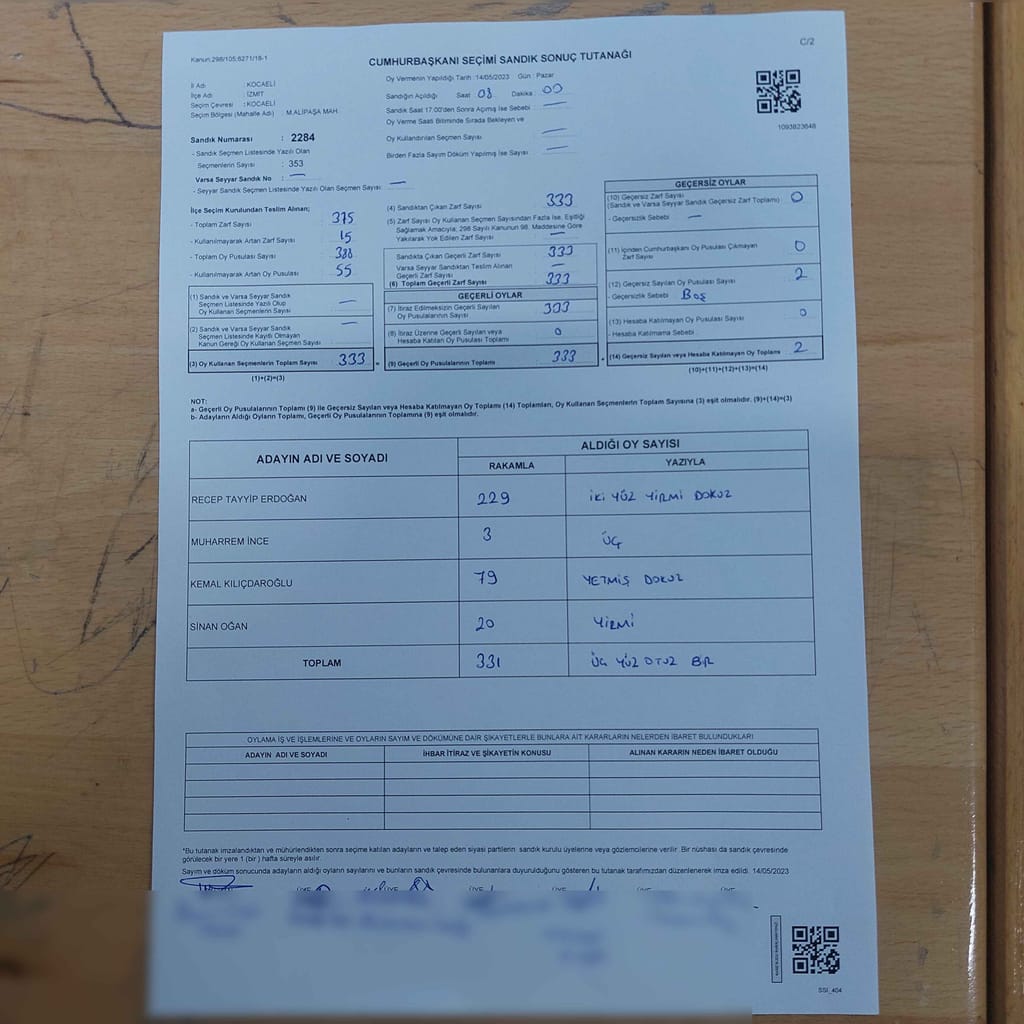 C/2
Kanun:298/105;6271/18-1
CUMHURBAŞKANI SEÇİMİ SANDIK SONUÇ TUTANAĞI
İl Adı : KOCAELİ
İlçe Adı : İZMİT
Seçim Çevresi : KOCAELİ
Seçim Bölgesi (Mahalle Adı) : M.ALİPAŞA MAH.
Sandık Numarası : 2284
- Sandık Seçmen Listesinde Yazılı Olan
Seçmenlerin Sayısı : 353
Varsa Seyyar Sandık No : —
- Seyyar Sandık Seçmen Listesinde Yazılı Olan Seçmen Sayısı —
Oy Vermenin Yapıldığı Tarih :14/05/2023 Gün : Pazar
Sandığın Açıldığı Saat 08 Dakika 00
Sandık Saat 17:00'den Sonra Açımış İse Sebebi —
Oy Verme Saati Bitiminde Sırada Bekleyen ve
Oy Kullandırılan Seçmen Sayısı —
Birden Fazla Sayım Döküm Yapılmış İse Sayısı —
1093823648
İlçe Seçim Kurulundan Teslim Alınan;
- Toplam Zarf Sayısı 375
- Kullanılmayarak Artan Zarf Sayısı 15
- Toplam Oy Pusulası Sayısı 388
- Kullanılmayarak Artan Oy Pusulası 55
(1) Sandık ve Varsa Seyyar Sandık
Seçmen Listesinde Yazılı Olup
Oy Kullanan Seçmenlerin Sayısı —
(2) Sandık ve Varsa Seyyar Sandık
Seçmen Listesinde Kayıtlı Olmayan
Kanun Gereği Oy Kullanan Seçmen Sayısı —
(3) Oy Kullanan Seçmenlerin Toplam Sayısı 333
(1)+(2)=(3)
(4) Sandıktan Çıkan Zarf Sayısı 333
(5) Zarf Sayısı Oy Kullanan Seçmen Sayısından Fazla İse, Eşitliği
Sağlamak Amacıyla; 298 Sayılı Kanunun 98. Maddesine Göre
Yakılarak Yok Edilen Zarf Sayısı —
Sandıkta Çıkan Geçerli Zarf Sayısı 333
Varsa Seyyar Sandıktan Teslim Alınan
Geçerli Zarf Sayısı —
(6) Toplam Geçerli Zarf Sayısı 333
GEÇERLİ OYLAR
(7) İtiraz Edilmeksizin Geçerli Sayılan
Oy Pusulalarının Sayısı 333
(8) İtiraz Üzerine Geçerli Sayılan veya
Hesaba Katılan Oy Pusulası Toplamı 0
(9) Geçerli Oy Pusulalarının Toplamı 333
GEÇERSİZ OYLAR
(10) Geçersiz Zarf Sayısı
(Sandık ve Varsa Seyyar Sandık Geçersiz Zarf Toplamı) 0
- Geçersizlik Sebebi —
(11) İçinden Cumhurbaşkanı Oy Pusulası Çıkmayan
Zarf Sayısı 0
(12) Geçersiz Sayılan Oy Pusulası Sayısı 2
- Geçersizlik Sebebi Boş
(13) Hesaba Katılmayan Oy Pusulası Sayısı 0
- Hesaba Katılmama Sebebi
(14) Geçersiz Sayılan veya Hesaba Katılmayan Oy Toplamı 2
(10)+(11)+(12)+(13)=(14)
NOT:
a- Geçerli Oy Pusulalarının Toplamı (9) ile Geçersiz Sayılan veya Hesaba Katılmayan Oy Toplamı (14) Toplamları, Oy Kullanan Seçmenlerin Toplam Sayısına (3) eşit olmalıdır. (9)+(14)=(3)
b- Adayların Aldığı Oyların Toplamı, Geçerli Oy Pusulalarının Toplamına (9) eşit olmalıdır.
ADAYIN ADI VE SOYADI
ALDIĞI OY SAYISI
RAKAMLA YAZIYLA
RECEP TAYYİP ERDOĞAN 229 İKİ YÜZ YİRMİ DOKUZ
MUHARREM İNCE 3 ÜÇ
KEMAL KILIÇDAROĞLU 79 YETMİŞ DOKUZ
SİNAN OĞAN 20 YİRMİ
TOPLAM 331 ÜÇ YÜZ OTUZ BİR
OYLAMA İŞ VE İŞLEMLERİNE VE OYLARIN SAYIM VE DÖKÜMÜNE DAİR ŞİKAYETLERLE BUNLARA AİT KARARLARIN NELERDEN İBARET BULUNDUKLARI
ADAYIN ADI VE SOYADI İHBAR İTİRAZ VE ŞİKAYETİN KONUSU ALINAN KARARIN NEDEN İBARET OLDUĞU
*Bu tutanak imzalandıktan ve mühürlendikten sonra seçime katılan adayların ve talep eden siyasi partilerin sandık kurulu üyelerine veya gözlemcilerine verilir. Bir nüshası da sandık çevresinde
görülecek bir yere 1 (bir ) hafta süreyle asılır.
Sayım ve döküm sonucunda adayların aldığı oyların sayılarını ve bunların sandık çevresinde bulunanlara duyurulduğunu gösteren bu tutanak tarafımızdan düzenlenerek imza edildi. 14/05/2023
ÜYE ÜYE ÜYE ÜYE ÜYE ÜYE
SSI_404